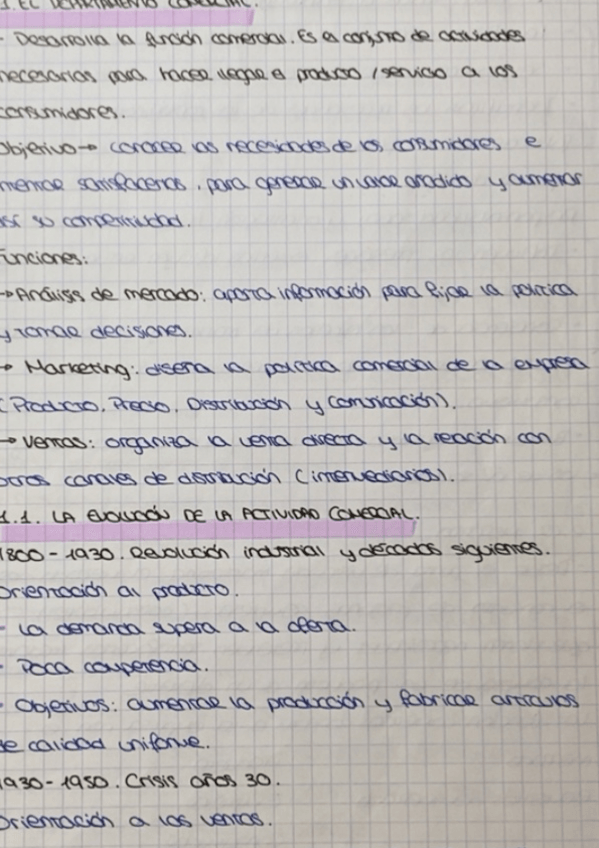 1. EL DEPARTAMENTO COMERCIAL.
- Desarrolla la función comercial. Es el conjunto de actividades
necesarias para hacer llegar el producto / servicio a los
consumidores.
Objetivo → conocer las necesidades de los consumidores e
intentar satisfacerlas, para generar un valor añadido y aumentar
así su competitividad.
Funciones:
→ Análisis de mercado: aporta información para fijar la política
y tomar decisiones.
→ Marketing: diseña la política comercial de la empresa
(Producto, Precio, Distribución y Comunicación).
→ Ventas: organiza la venta directa y la relación con
otros canales de distribución (intermediarios).
1.1. LA EVOLUCIÓN DE LA ACTIVIDAD COMERCIAL.
1800 - 1930. Revolución industrial y décadas siguientes.
Orientación al producto.
- La demanda supera a la oferta.
- Poca competencia.
- Objetivos: aumentar la producción y fabricar artículos
de calidad uniforme.
1930 - 1950. Crisis años 30.
Orientación a las ventas.